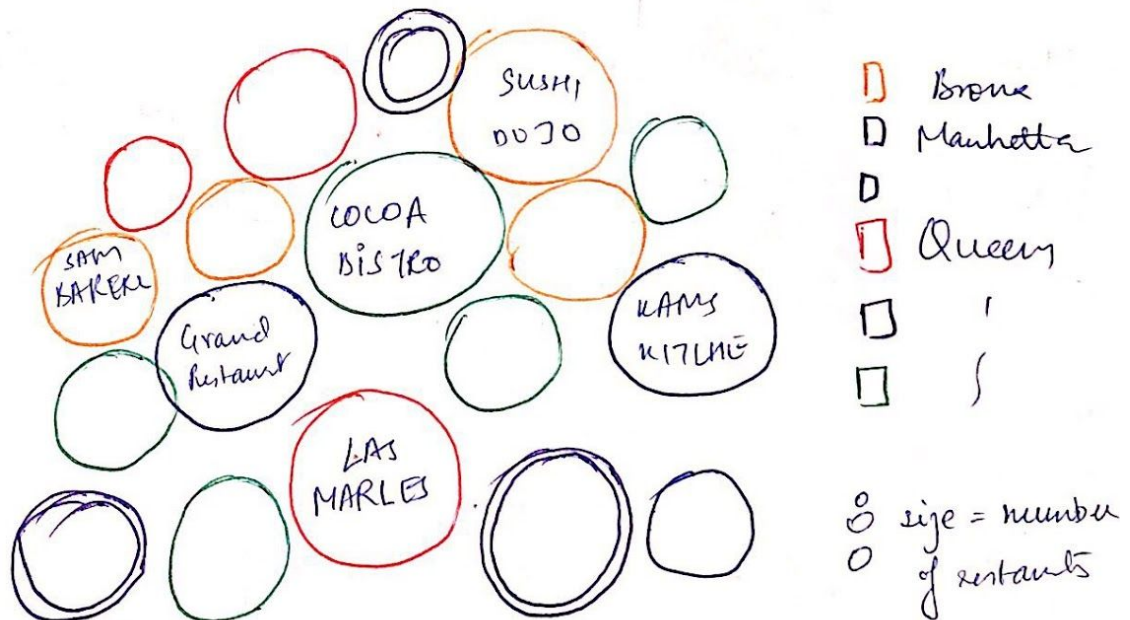 SUSHI
DOJO
COCOA
BISTRO
SAM
BAKERE
Grand
Restaurst
KAMS
KITCHE
LAS
MARLES
Bronx
Manhetta
Queens
size = number
of restaurts